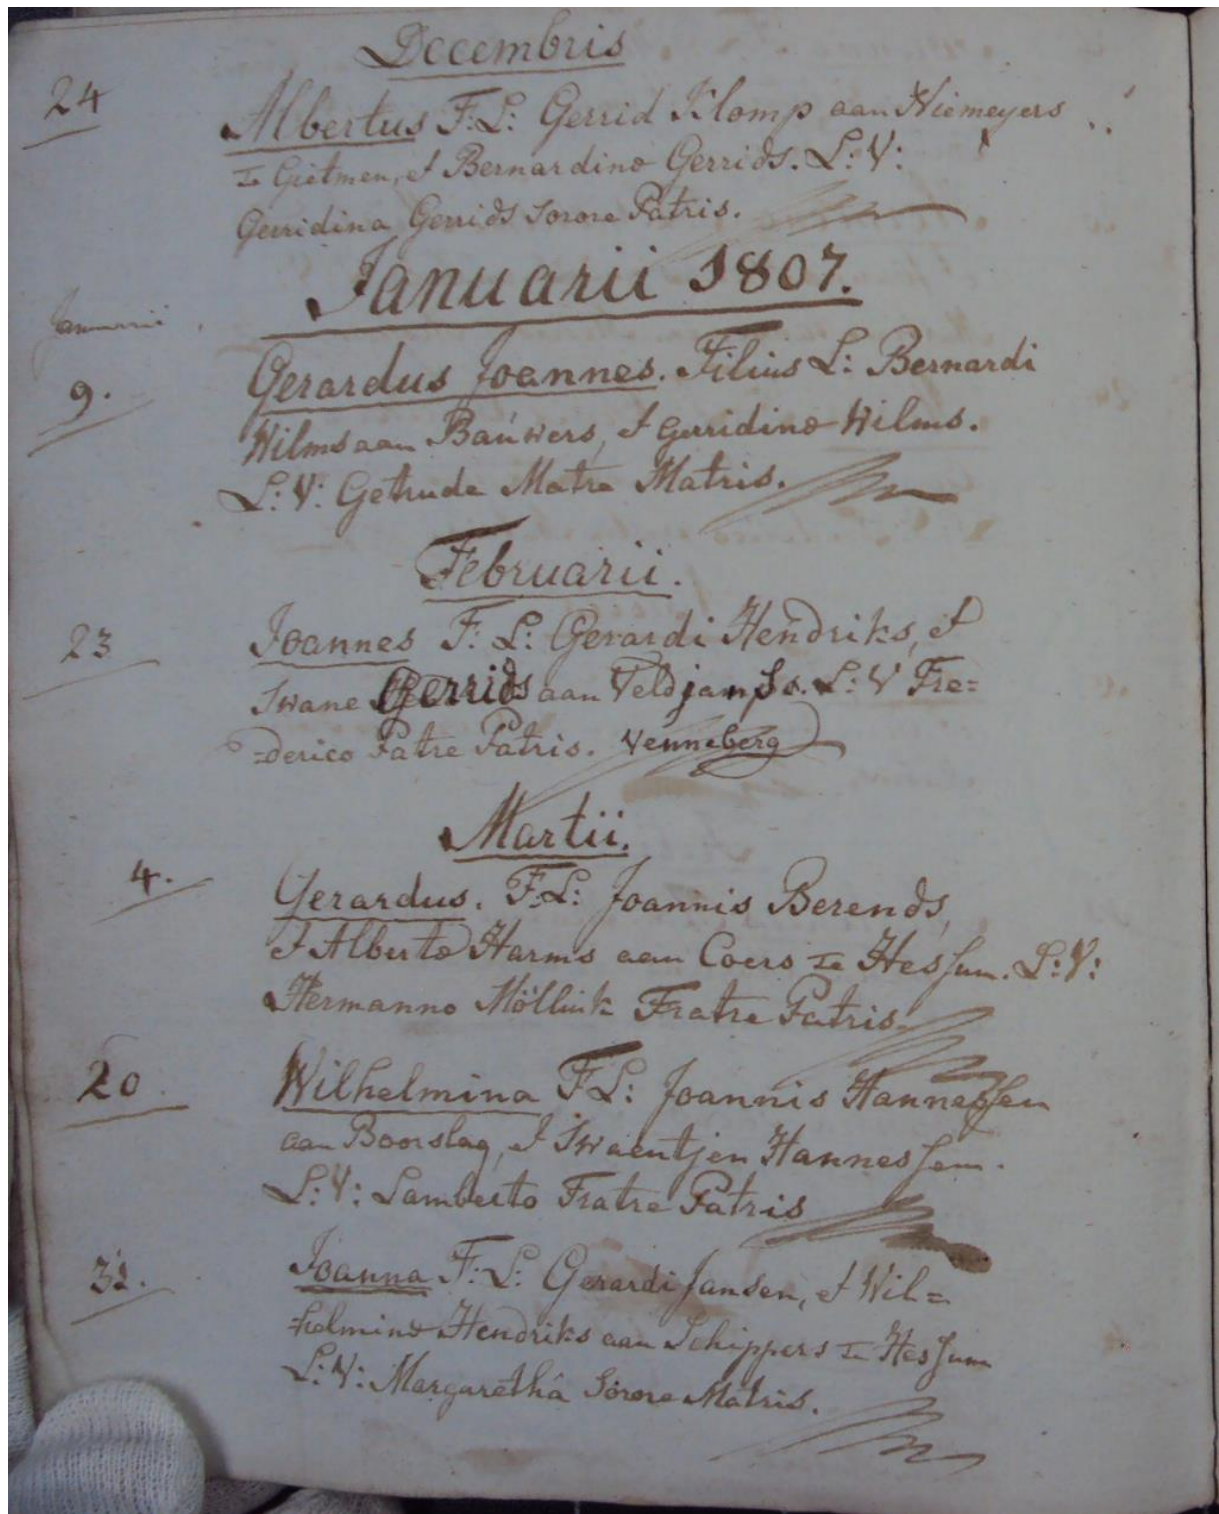 Decembris
24
Albertus F: L: Gerrid Klomp aan Niemeyers
Te Gietmen, et Bernardinæ Gerrids. L: V:
Gerridina Gerrids Sorore Patris.
Januarii 1807.
Januarii
9.
Gerardus Joannes. Filius L: Bernardi
Wilms aan Bauwers, et Gerridinæ Wilms.
L: V: Getrude Matre Matris.
Februarii.
23
Joannes F: L: Gerardi Hendriks, et
Swane Gerrids aan Veldjans. L: V Fre=
=derico Patre Patris. Venneberg
Martii.
4.
Gerardus. F: L: Joannis Berends,
et Albertæ Harms aan Coers Te Hessum. L: V:
Hermanno Möllink Fratre Patris.
20
Wilhelmina F L: Joannis Hannessen
aan Boorslag, et Swaentjen Hannessen.
L: V: Lamberto Fratre Patris
31.
Joanna F: L: Gerardi Jansen, et Wil=
=helminæ Hendriks aan Schippers Te Hessum
L: V: Margarethâ Sorore Matris.